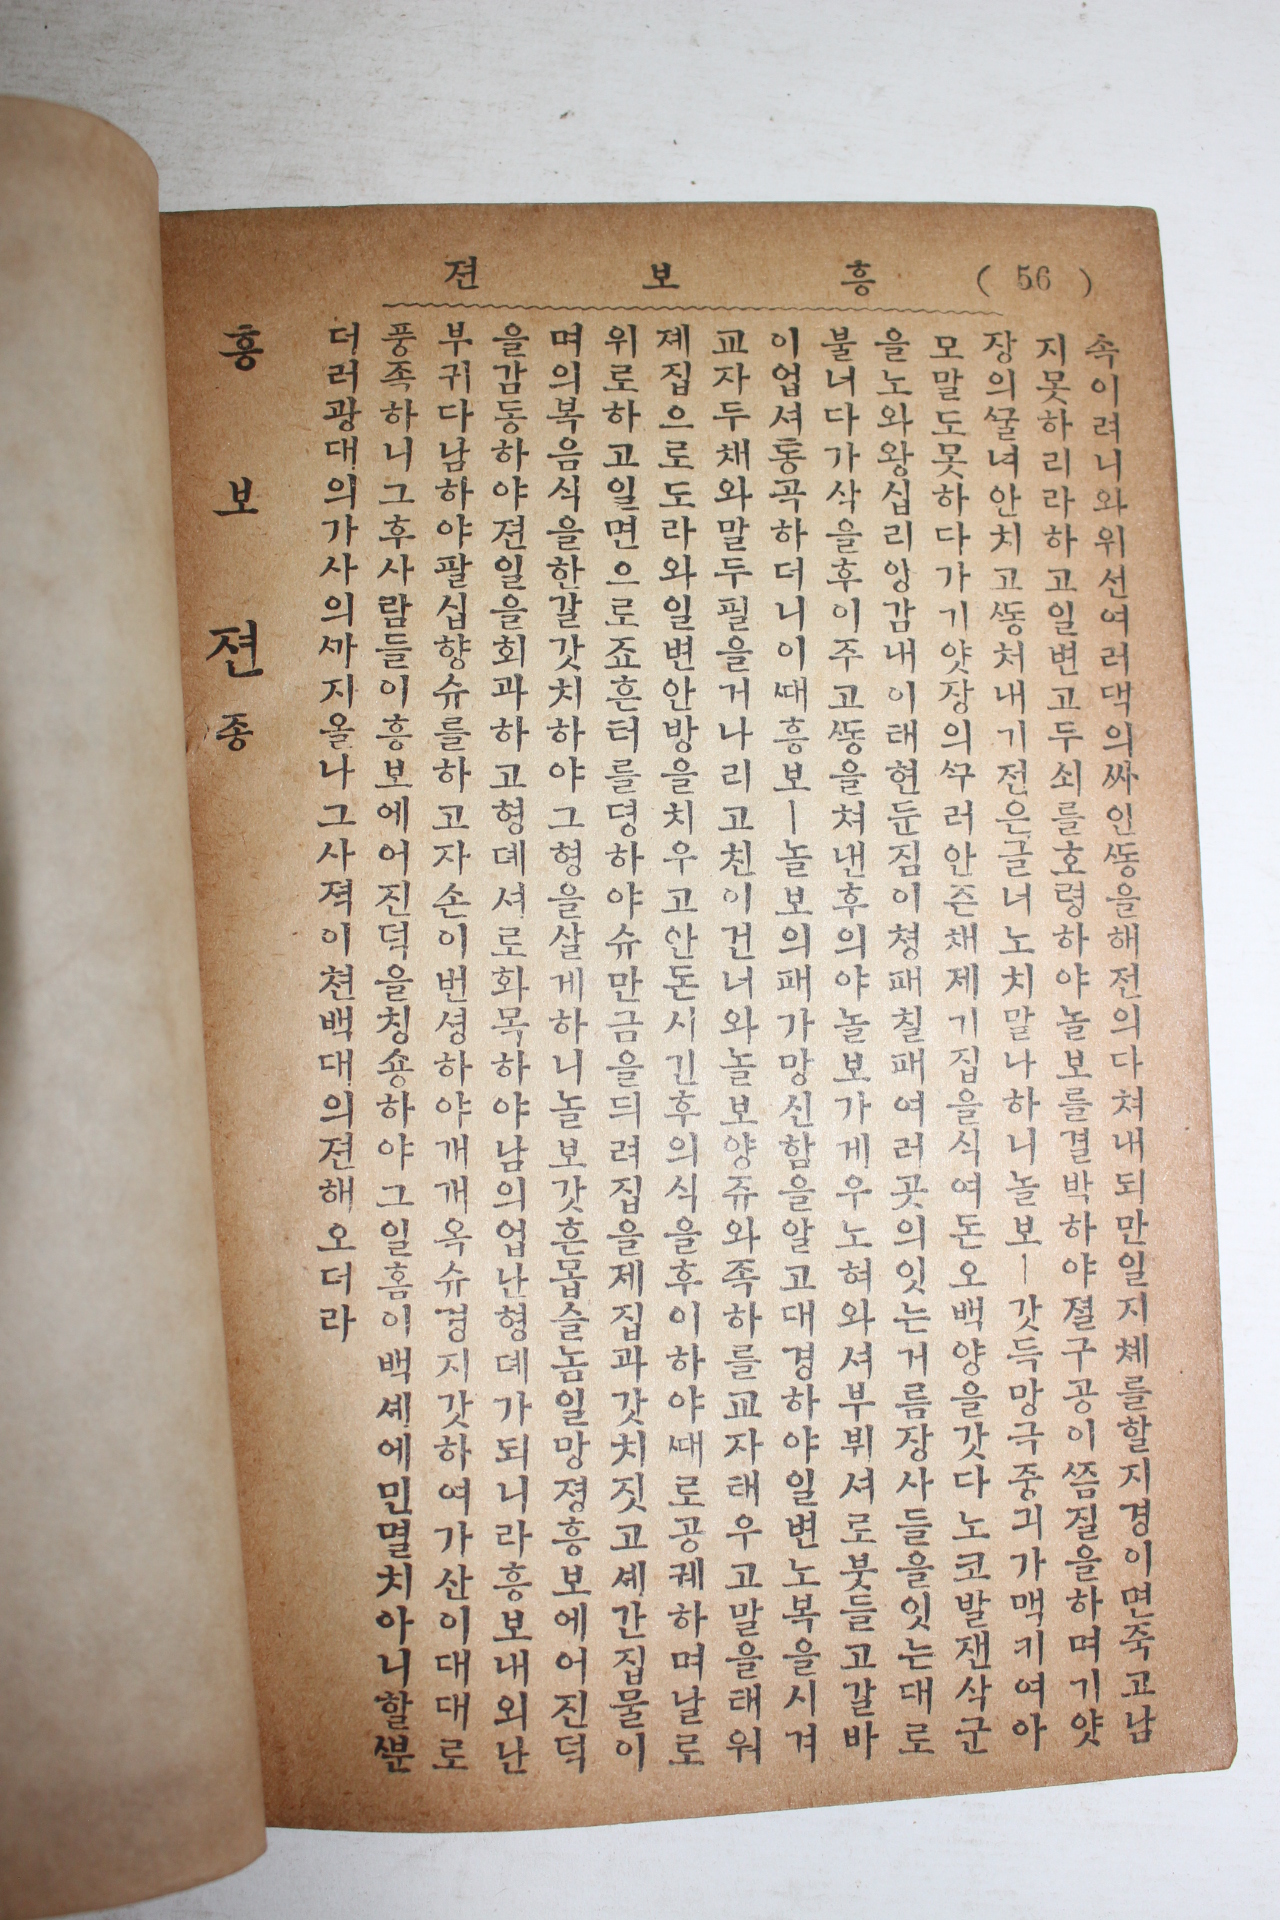 ( 56 ) 흥 보 젼
속이려니와위선여러댁의싸인ᄯᅩᆼ을해전의다쳐내되만일지체를할지경이면죽고남
지못하리라하고일변고두쇠를호령하야놀보를결박하야졀구공이ᄶᅳᆷ질을하며기얏
장의ᄭᅮᆯ녀안치고ᄯᅩᆼ처내기전은글너노치말나하니놀보ㅣ갓득망극중긔가맥키여아
모말도못하다가기얏장의ᄭᅮ러안즌채제기집을식여돈오백양을갓다노코발잰삭군
을노와왕십리앙감내이태현둔짐이쳥패칠패여러곳의잇는거름장사들을잇는대로
불너다가삭을후이주고ᄯᅩᆼ을쳐낸후의야놀보가게우노혀와셔부뷔셔로붓들고갈바
이업셔통곡하더니이ᄯᅢ흥보ㅣ놀보의패가망신함을알고대경하야일변노복을시겨
교자두채와말두필을거나리고친이건너와놀보양쥬와족하를교자태우고말을태워
졔집으로도라와일변안방을치우고안돈시긴후의식을후이하야ᄯᅢ로공궤하며날로
위로하고일면으로죠흔터를뎡하야슈만금을듸려집을제집과갓치짓고셰간집물이
며의복음식을한갈갓치하야그형을살게하니놀보갓흔몹슬놈일망졍흥보에어진덕
을감동하야젼일을회과하고형뎨셔로화목하야남의업난형뎨가되니라흥보내외난
부귀다남하야팔십향슈를하고자손이번셩하야개개옥슈경지갓하여가산이대대로
풍족하니그후사람들이흥보에어진덕을칭숑하야그일홈이백셰에민멸치아니할ᄲᅮᆫ
더러광대의가사의ᄭᅡ지올나그사젹이쳔백대의젼해오더라
흥 보 젼 죵